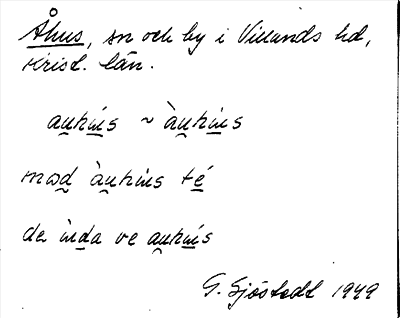 Åhus, sn och by i Villands hd,
Krist. län.
au̯hi̲ns ~ àu̯hi̲ns
mad àuhins té̲
de ìnda ve au̯hi̲ns
G. Sjöstedt 1949